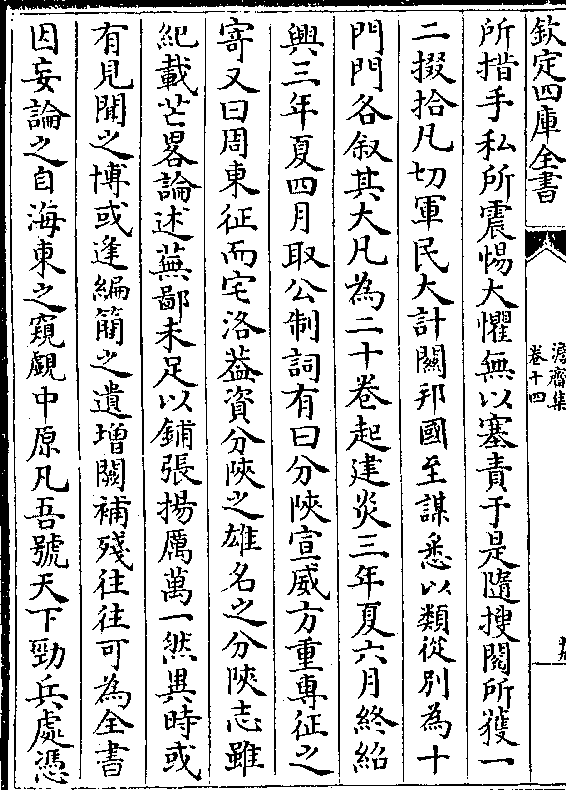 欽定四庫全書
澹齋集
卷十四
所措手私所震惕大懼無以塞責于是隨搜閱所獲一
二掇拾凡切軍民大計關邦國至謀悉以類從别為十
門門各叙其大凡為二十卷起建炎三年夏六月終紹
興三年夏四月取公制詞有曰分陜宣威方重專征之
寄又曰周東征而宅洛葢資分陜之雄名之分陜志雖
紀載芒畧論述蕪鄙未足以鋪張揚厲萬一然異時或
有見聞之博或逢編簡之遺增闕補殘往往可為全書
因妄論之自海東之窺覰中原凡吾號天下勁兵處憑